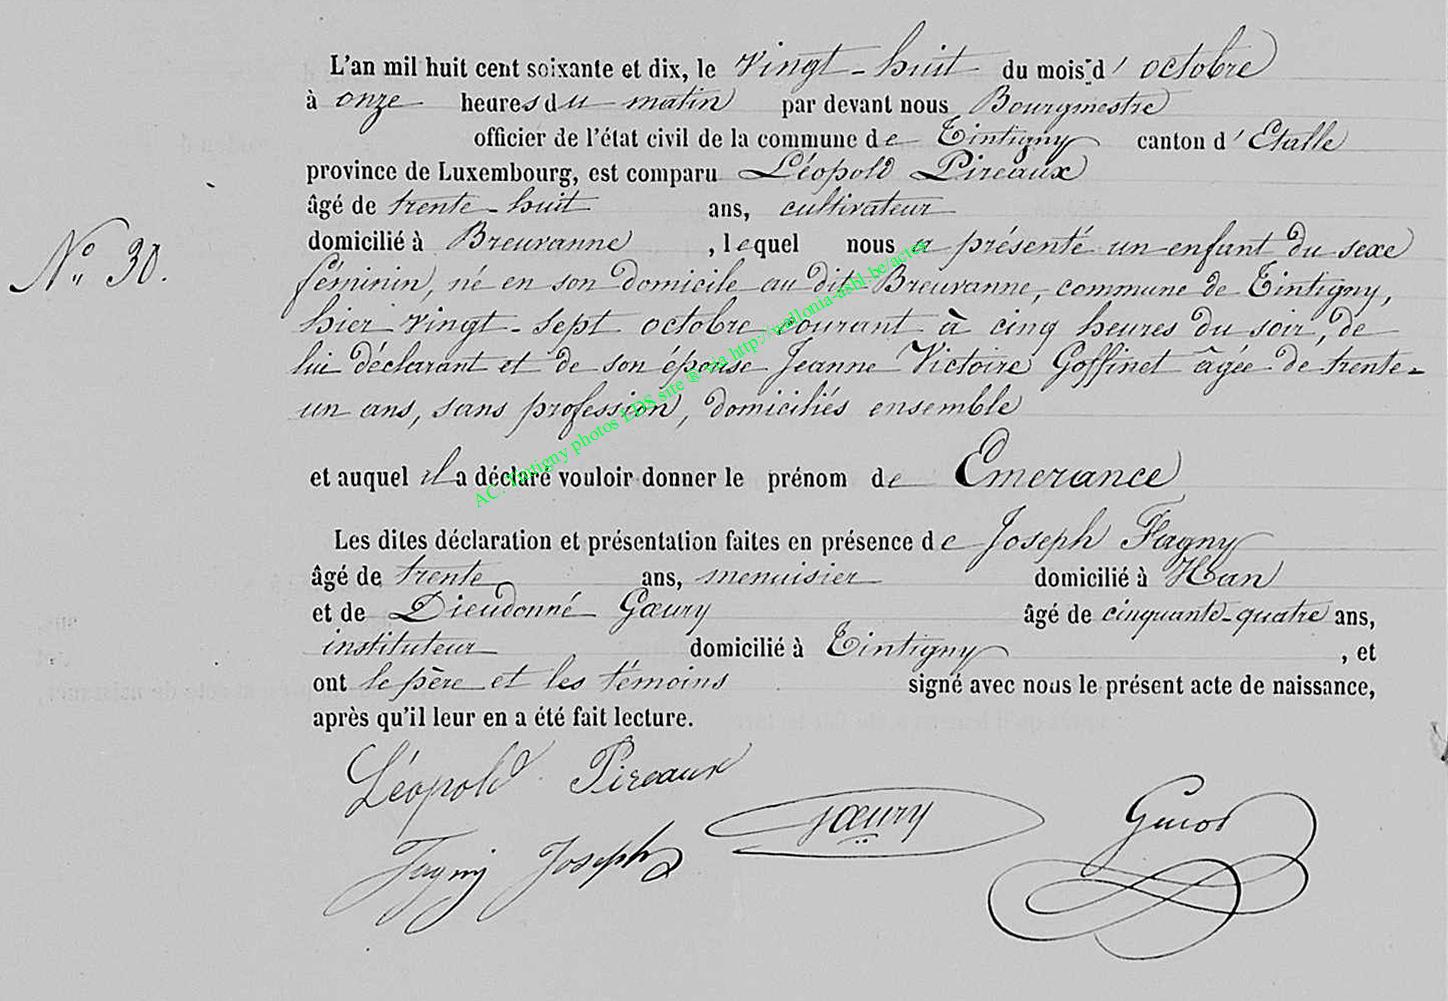 L'an mil huit cent soixante et dix, le vingt-huit du mois d' octobre
à onze heures du matin par devant nous Bourgmestre
officier de l'état civil de la commune de Tintigny canton d' Etalle
province de Luxembourg, est comparu Léopold Pireaux
âgé de trente-huit ans, cultivateur
domicilié à Breuvanne, lequel nous a présenté un enfant du sexe
N° 30.
féminin, né en son domicile au dit Breuvanne, commune de Tintigny,
hier vingt-sept octobre courant à cinq heures du soir, de
lui déclarant et de son épouse Jeanne Victoire Goffinet âgée de trente-
un ans, sans profession, domiciliés ensemble
et auquel il a déclaré vouloir donner le prénom de Emerance
Les dites déclaration et présentation faites en présence de Joseph Fagny
âgé de trente ans, menuisier domicilié à Han
et de Dieudonné Gœury âgé de cinquante-quatre ans,
instituteur domicilié à Tintigny, et
ont le père et les témoins signé avec nous le présent acte de naissance,
après qu'il leur en a été fait lecture.
Léopold Pireaux
Gœury
Fagny Joseph
AC. Tintigny photos LDS site ® via http://wallonia-asbl-be/actes